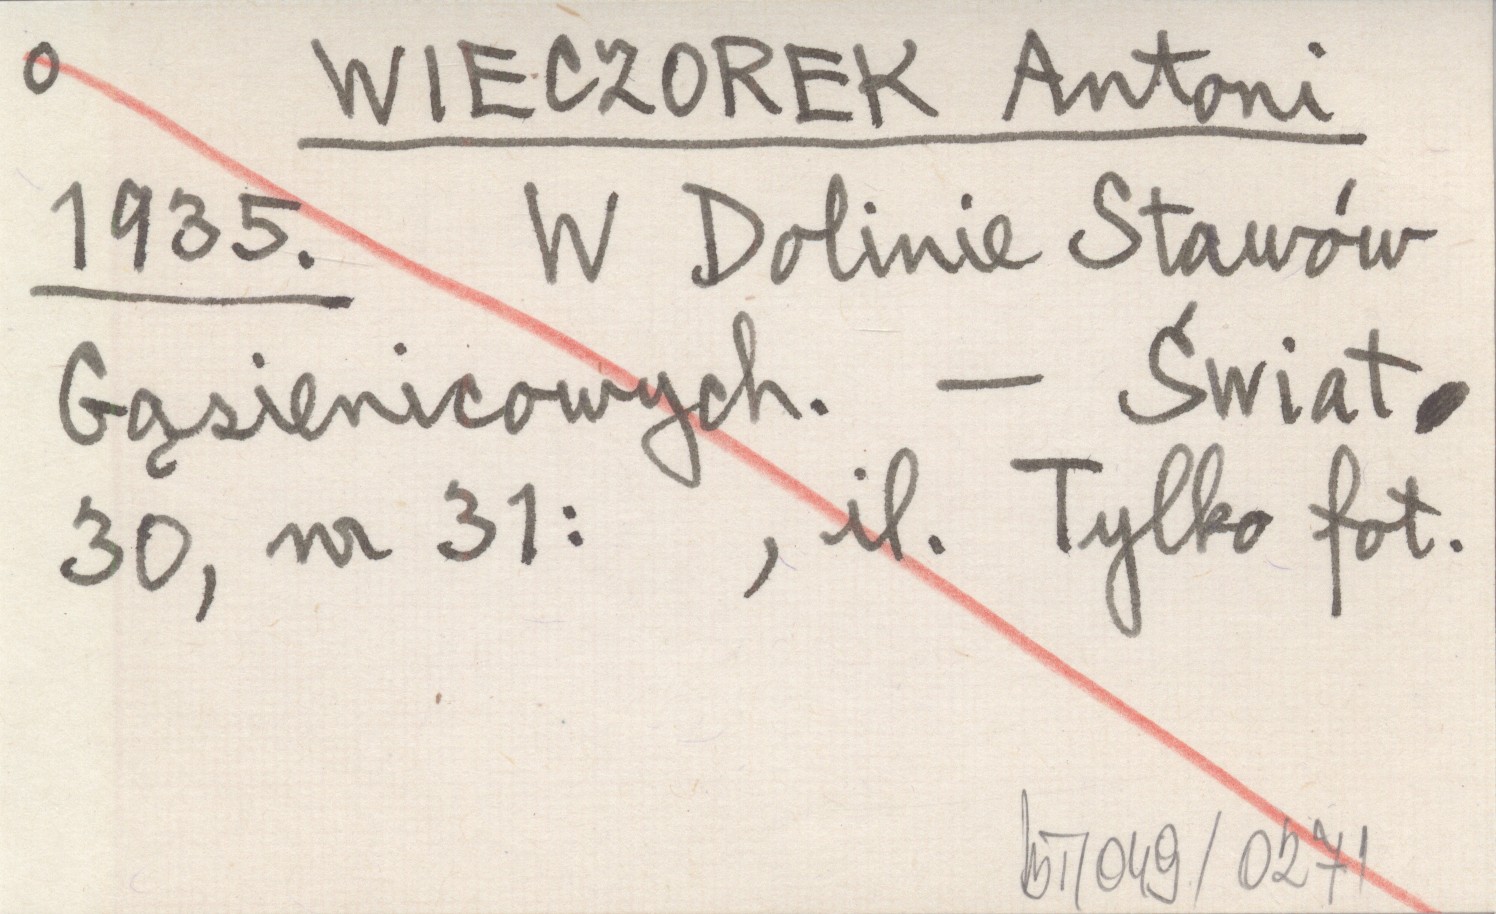 o WIECZOREK Antoni
1935. W Dolinie Stawów
Gąsienicowych. — Świat.
30, nr 31: , il. Tylko fot.
049/0271